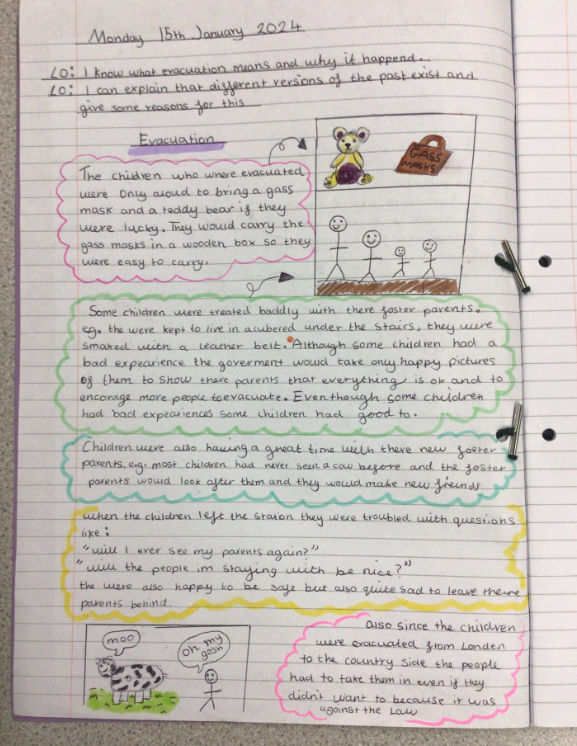 Monday 15th January 2024
LO: I know what evacuation means and why it happend.
LO: I can explain that different versions of the past exist and
give some reasons for this
Evacuation
The children who where evacuated
were only aloud to bring a gass
mask and a teddy bear if they
were lucky. They would carry the
gass masks in a wooden box so they
were easy to carry.
GASS
MASKS
Some children were treated baddly with there foster parents.
eg. the were kept to live in a cubered under the stairs, they were
smaked with a leather belt. Although some children had a
bad expearience the goverment would take only happy pictures
of them to show there parents that everything is ok and to
encorage more people to evacuate. Even though some children
had bad expeariences some children had good to.
Children were also having a great time with there new foster
parents. e.g. most children had never seen a cow before and the foster
parents would look after them and they would make new friends
when the children left the staion they were troubled with questions
like:
"will I ever see my parents again?"
"will the people im staying with be nice?"
the were also happy to be safe but also quite sad to leave there
parents behind.
moo
oh my
gosh
also since the children
were evacuated from London
to the country side the people
had to take them in even if they
didn't want to because it was
against the law